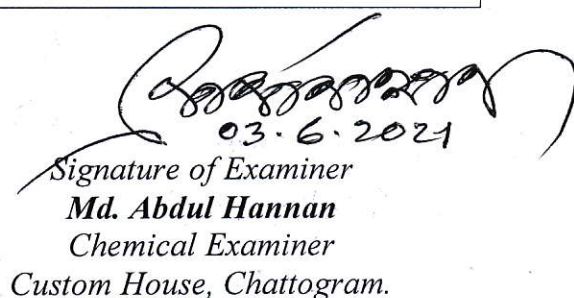 03.6.2021
Signature of Examiner
Md. Abdul Hannan
Chemical Examiner
Custom House, Chattogram.